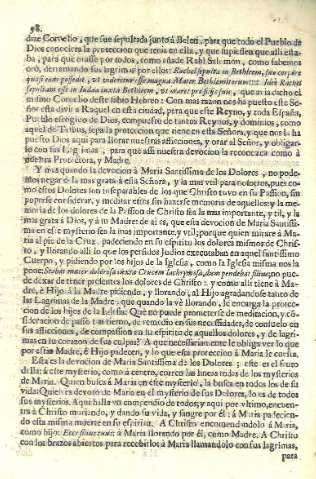 98.
dize Cornelio, que fue sepultado junto à Belen, para que todo el Pueblo de
Dios conociera la proteccion que tenia en ella, y que supiessen que alli esta-
ba, para que orasse por todos, como añade Rabi Salomon, como sabemos
orò, derramando sus lagrimas por ellos: Rachel sepulta in Bethleem,
que
mismo Cornelio deste libro Hebreo: Con mas razon nos ha puesto este Se-
ñor esta divina Raquel en esta ciudad, para que este Reyno, y toda España,
Pueblo escogido de Dios, compuesto de tantos Reynos, y dominios, como
aquel de Tribus, sepa la proteccion que tiene en esta Señora, y que nos la ha
puesto Dios aqui para llorar nuestras afficiones, y orar al Señor, y obligar-
lo con sus Lagrimas, para que assi nuestra devocion la reconozca como à
nuestra Protectora, y Madre.
Y mas quando la devocion à Maria Santissima de los Dolores, no pode-
mos negar es la mas grata à esta Señora, y la mas vtil para nosotros, pues co-
mo estos Dolores son inseparables de los que Christo tuvo en su Passion, sin
poderse considerar, y meditar estos sin hazerse memoria de aquellos: y la me-
moria de los dolores de la Passion de Christo sea la mas importante, y til, y la
mas grata à Dios, y à su Madre: de aì es, que esta devocion de Maria Santissi-
ma en este mysterio sea la mas importante, y vtil; porque quien mirare à Ma-
ria al pie de la Cruz, padeciendo en su espiritu los dolores mismos de Chris-
to, y llorando alli lo que los perfidos Judios executaban en aquel santissimo
Cuerpo, y pidiendo por los hijos de la Iglesia, como la Iglesia misma nos la
pone: Stabat mater dolorosa iuxta Crucem lachrymosa, dum pendebat filius; no pue-
de dexar de tener presentes los dolores de Christo: y como alli tiene à Ma-
dre, è Hijo: à la Madre pidiendo, y llorando; al Hijo agradandose tanto de
las Lagrimas de la Madre, que quando la vè llorando, le encarga la protec-
cion de los hijos de la Iglesia: Què no puede prometerse de meditacion, y có-
sideracion de passo tan tierno, de remedio en sus necessidades, de consuelo en
sus aflicciones, de compassion en su espiritu de aquellos dolores, y de lagri-
mas en su corazon de sus culpas? A que necessariamente le obligue ver lo que
por el tan Madre, è Hijo padecen, y lo que esta proteccion à Maria le cuesta.
Esta es la devocion de Maria Santissima de los Dolores; este es el fruto
della: à este mysterio, como à centro, corren las lineas todas de los mysterios
de Maria. Quien busca à Maria en este mysterio, la busca en todos los de su
vida: Quien es devoto de Maria en el mysterio de sus Dolores, lo es de todos
sus mysterios. Aqui halla vn compendio de todos, y aqui por vltimo, encuen-
tra à Christo muriendo, y dando su vida, y sangre por èl: à Maria padecien-
do esta misma muerte en su espiritu. A Christo encomendandolo à Maria,
como hijo: Ecce filius tuus: à Maria llorando por èl, como Madre. A Christo
con los brazos abiertos para recebirlos à Maria llamandolo con sus lagrimas,
para